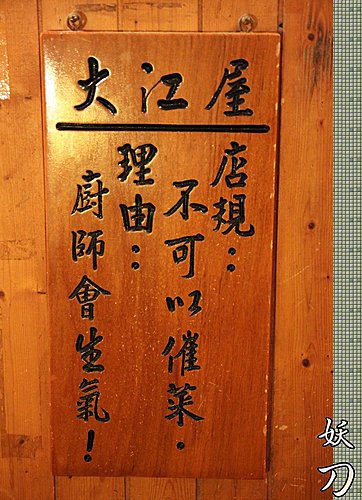 大江屋
店規：
不可以催菜．
理由：
廚師會生氣！
妖刀